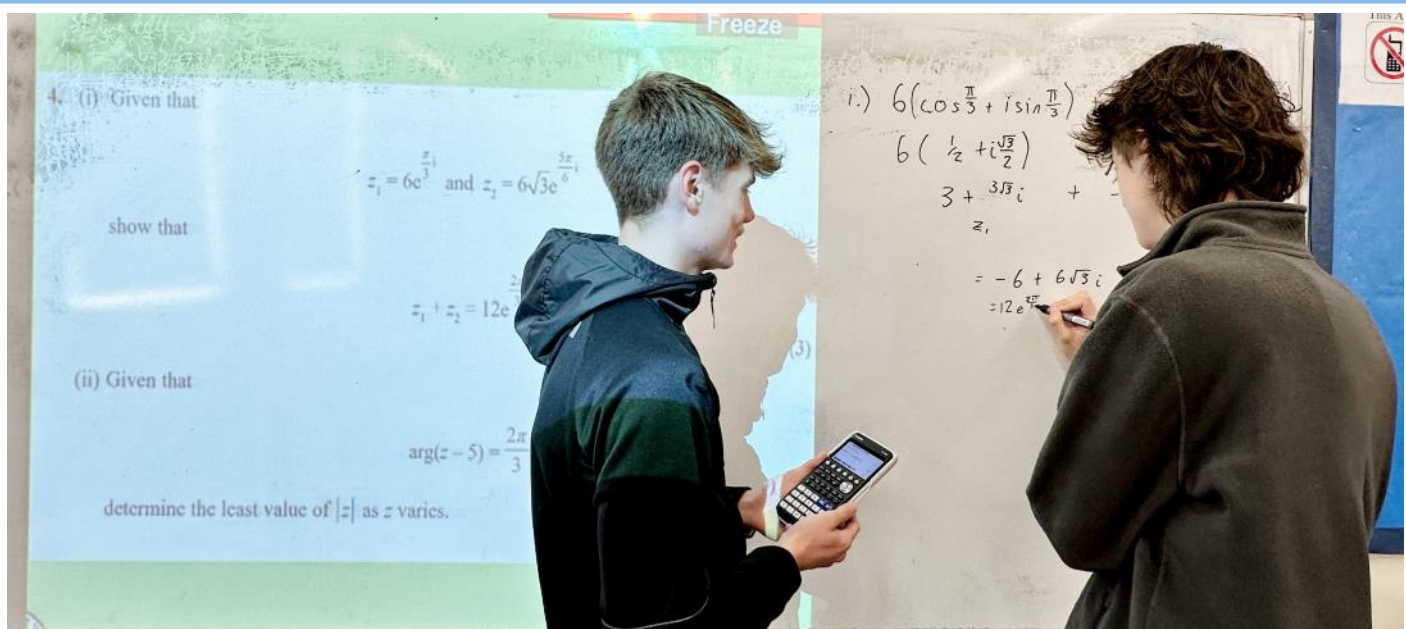 Freeze
This A
4. (i) Given that
z₁ = 6e^(π/3 i) and z₂ = 6√3e^(5π/6 i)
show that
z₁ + z₂ = 12e^2
(3)
(ii) Given that
arg(z − 5) = 2π/3
determine the least value of |z| as z varies.
i.) 6(cos π/3 + i sin π/3)
6( 1/2 + i √3/2 )
3 + 3√3 i +
z₁
= -6 + 6√3 i
= 12e^2π